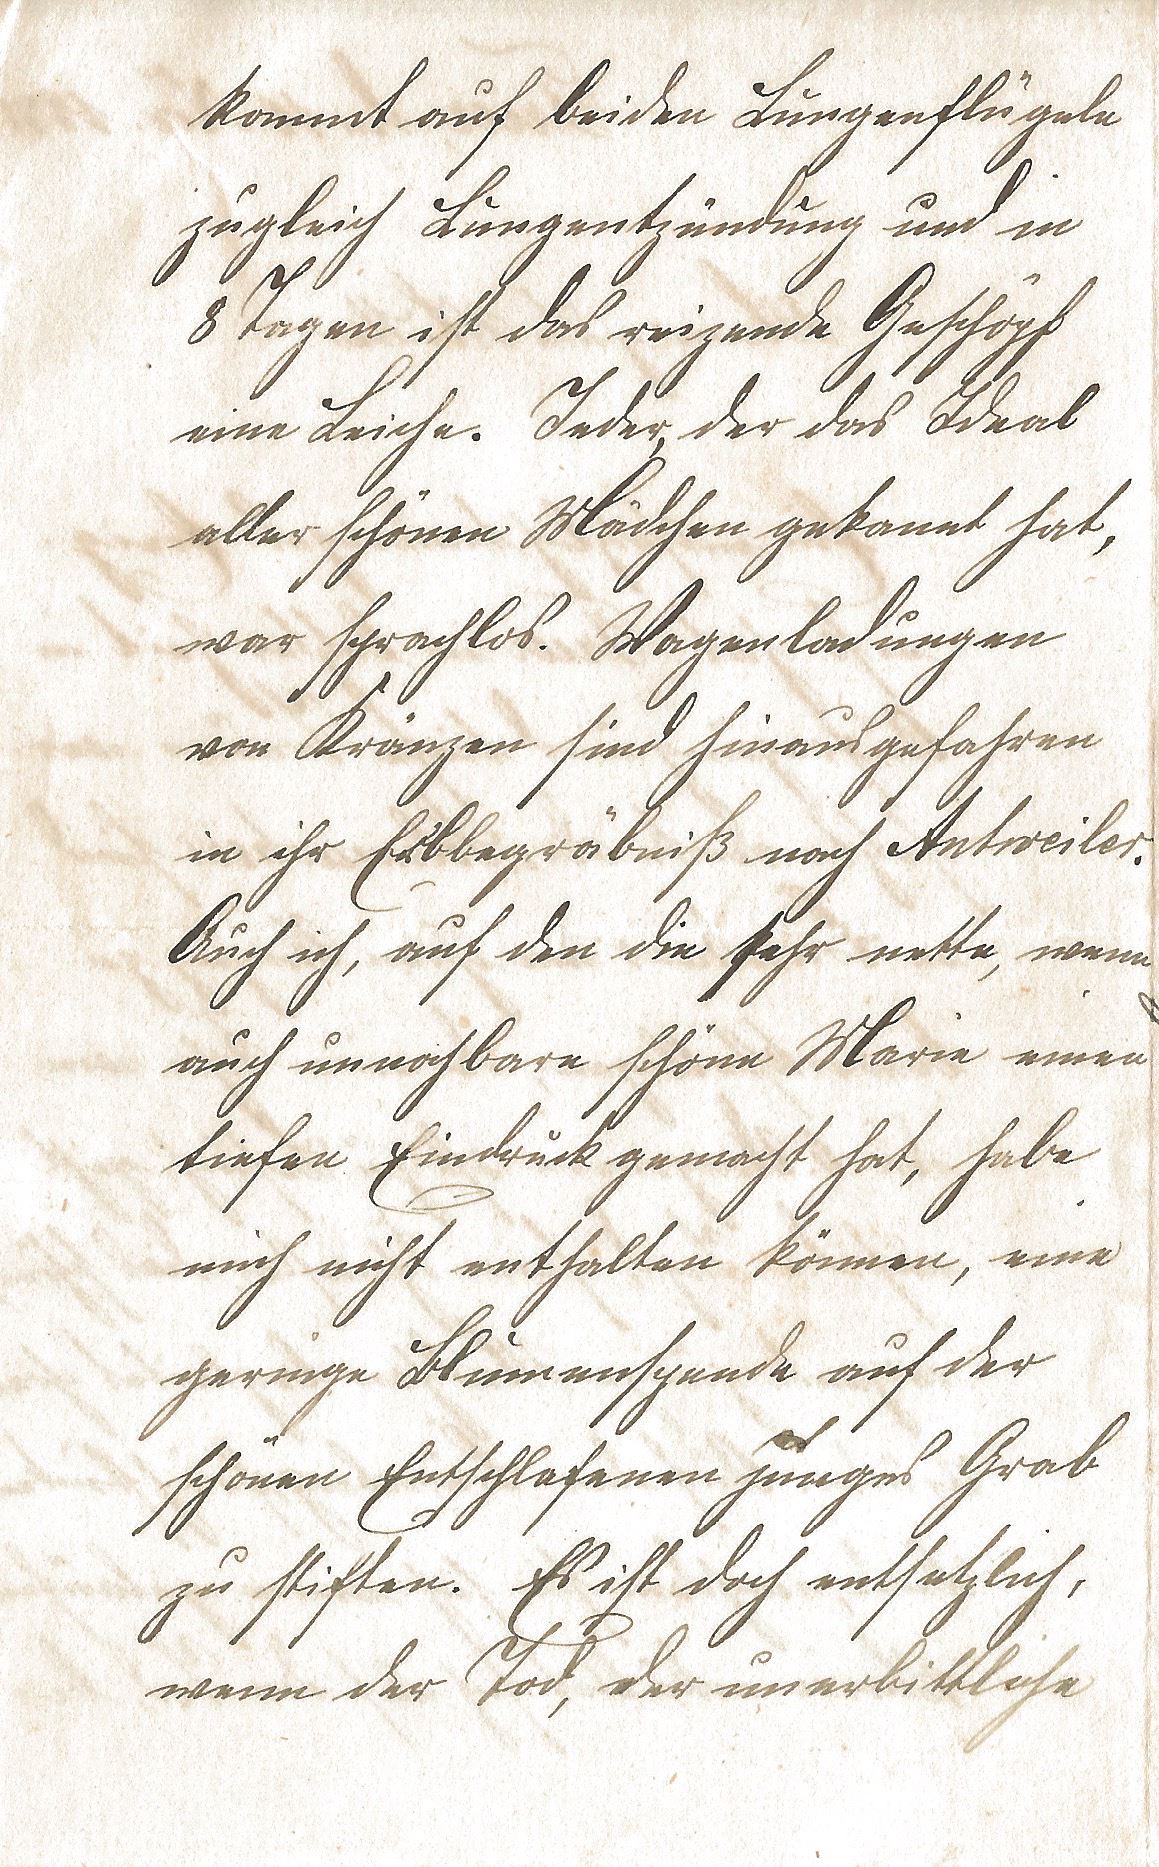 kommt auf beiden Lungenflügeln
zugleich Lungentzündung und in
8 Tagen ist das reizende Geschöpf
eine Leiche. Jeder, der das Ideal
aller schönen Mädchen gekannt hat,
war sprachlos. Wagenladungen
von Kränzen sind hinausgefahren
in ihr Erbbegräbniß nach Antweiler.
Auch ich, auf den die sehr nette, wenn
auch unnahbare schöne Marie einen
tiefen Eindruck gemacht hat, habe
mich nicht enthalten können, eine
geringe Blumenspende auf der
schönen Entschlafenen junges Grab
zu stiften. Es ist doch entsetzlich,
wenn der Tod, der unerbittliche